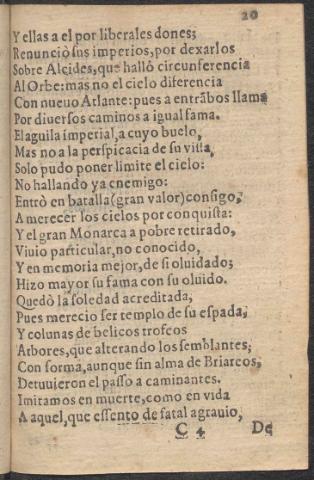 20
Y ellas a el por liberales dones;
Renunciò sus imperios, por dexarlos
Sobre Alcides, que hallò circunferencia
Al Orbe: mas no el cielo diferencia
Con nueuo Atlante: pues a entrābos llama
Por diuersos caminos a igual fama.
El aguila imperial, a cuyo buelo,
Mas no a la perspicacia de su vista,
Solo pudo poner limite el cielo:
No hallando ya enemigo:
Entrò en batalla (gran valor) consigo,
A merecer los cielos por conquista:
Y el gran Monarca a pobre retirado,
Viuio particular, no conocido,
Y en memoria mejor, de si oluidado;
Hizo mayor su fama con su oluido.
Quedò la soledad acreditada,
Pues merecio ser templo de su espada;
Y colunas de belicos trofeos
Arbores, que alterando los semblantes,
Con forma, aunque sin alma de Briareos,
Detuuieron el passo a caminantes.
Imitamos en muerte, como en vida
A aquel, que essento de fatal agrauio,
C 4 De